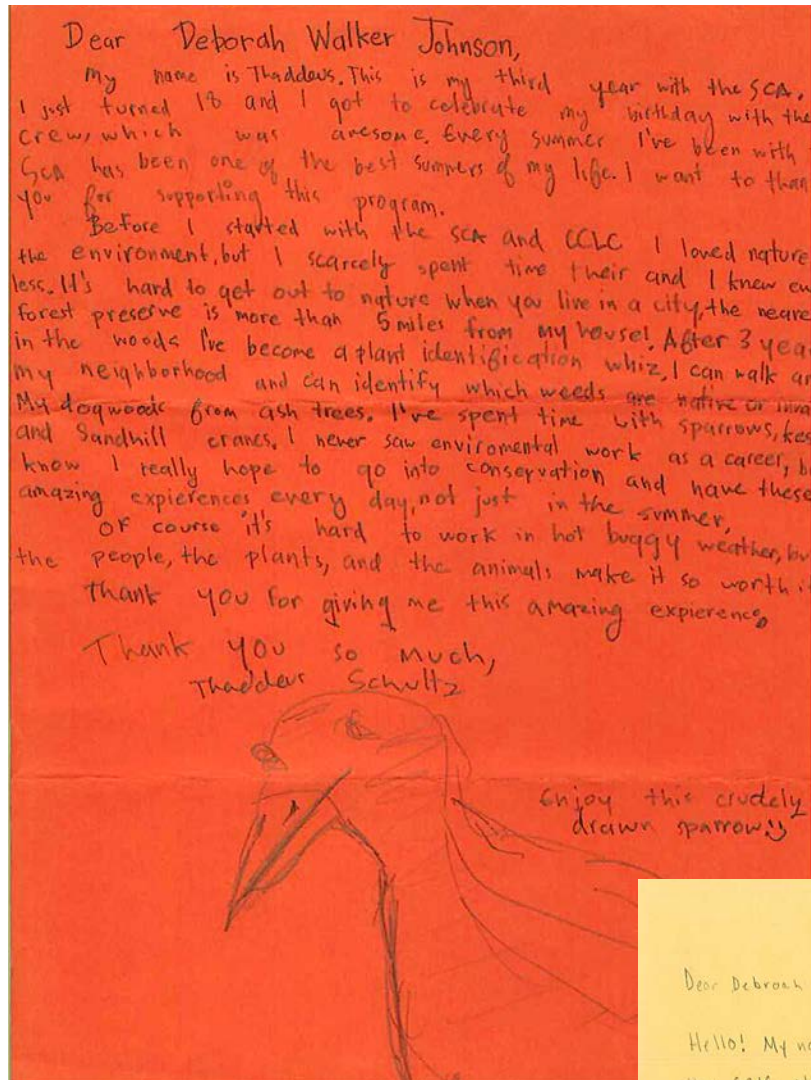 Dear Deborah Walker Johnson,
My name is Thaddeus. This is my third year with the SCA.
I just turned 18 and I got to celebrate my birthday with the
crew, which was awesome. Every summer I've been with
SCA has been one of the best summers of my life. I want to than
you for supporting this program.
Before I started with the SCA and CCLC I loved nature
the environment, but I scarcely spent time their and I knew ev
less. It's hard to get out to nature when you live in a city, the neare
forest preserve is more than 5 miles from my house! After 3 yea
in the woods I've become a plant identification whiz, I can walk ar
my neighborhood and can identify which weeds are native or inva
My dogwoods from ash trees. I've spent time with sparrows, kes
and Sandhill cranes. I never saw enviromental work as a career, b
know I really hope to go into conservation and have these
amazing expierences every day, not just in the summer,
OF course it's hard to work in hot buggy weather, bu
the people, the plants, and the animals make it so worth i
Thank you for giving me this amazing expierence.
Thank you so much,
Thaddeus Schultz
Enjoy this crudely
drawn sparrow :)
Dear Debroah
Hello! My na